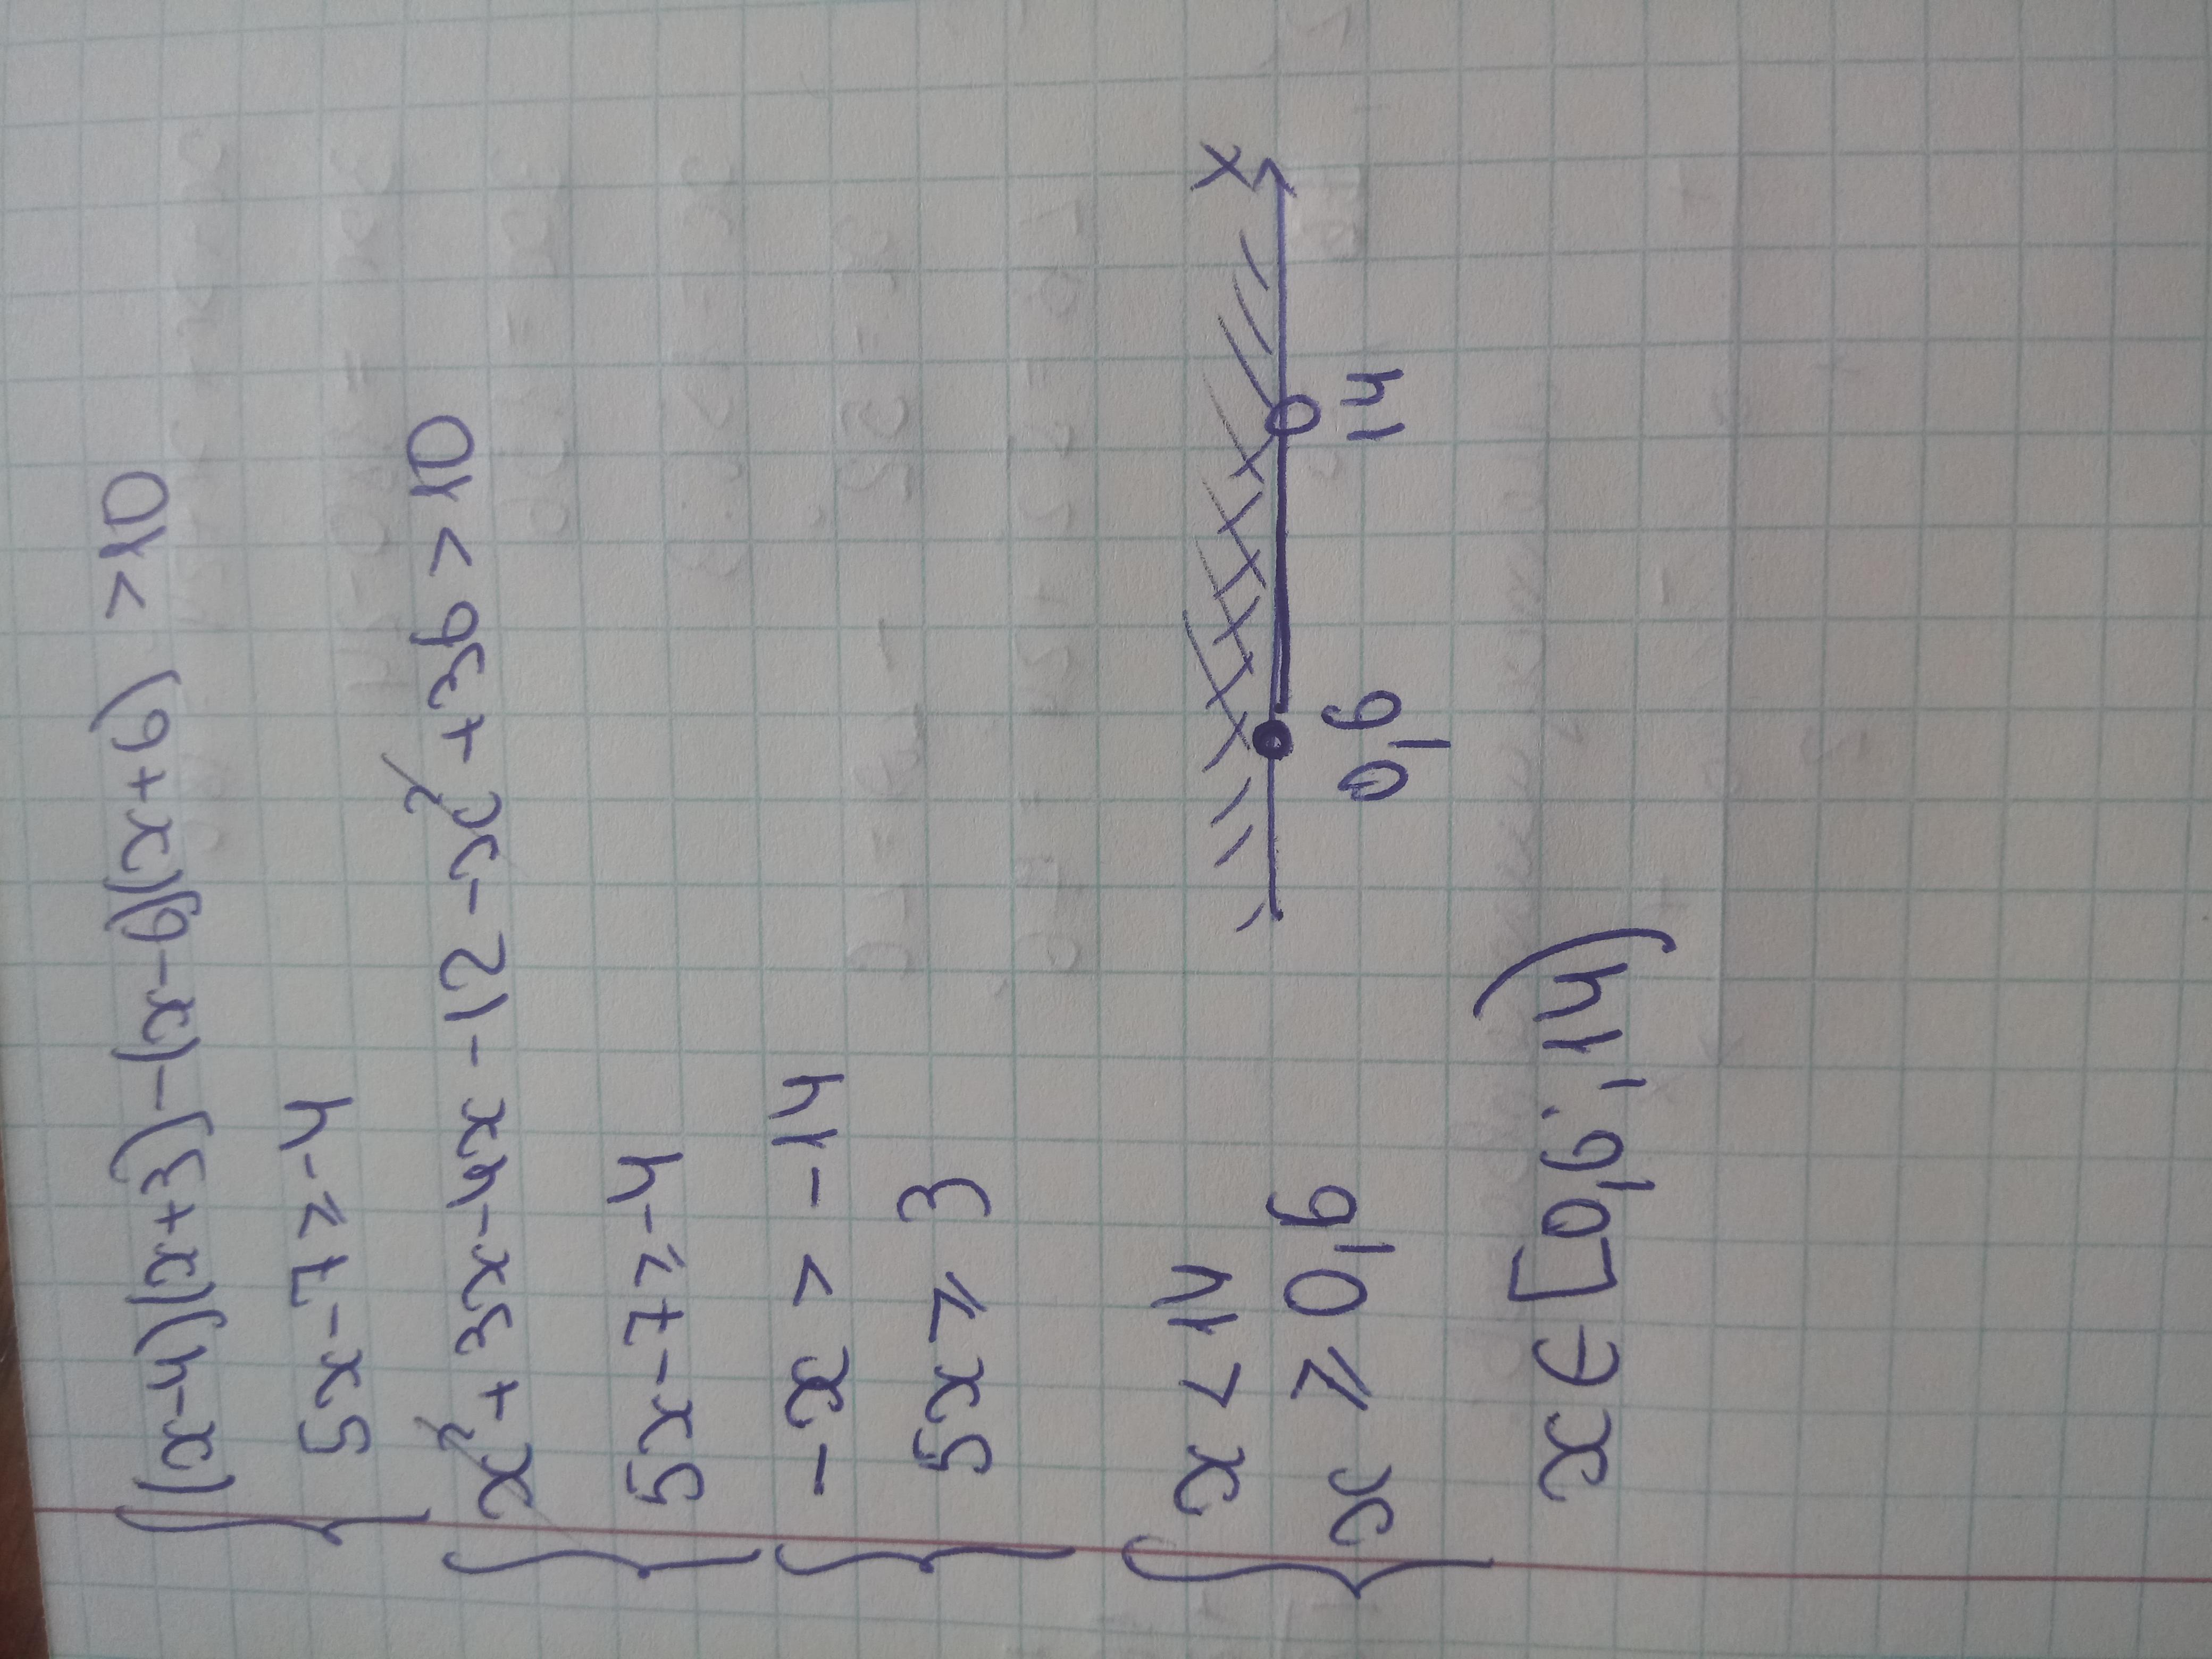 (x-4)(x+3)-(x-6)(x+6) > 10
5x-7≥-4
x²+3x-4x-12-x²+36 > 10
5x-7≥-4
-x > -14
5x ≥ 3
x < 14
x ≥ 0,6
0,6 14 x
x ∈ [0,6; 14)